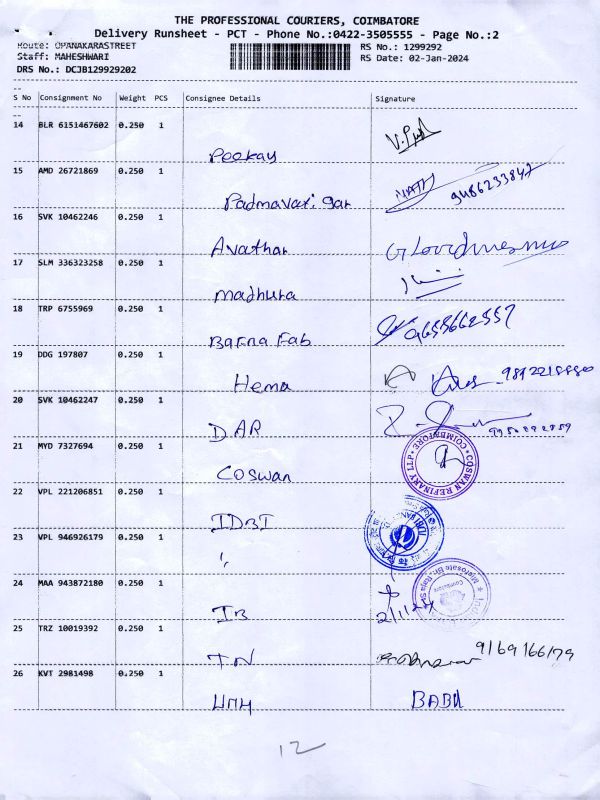 THE PROFESSIONAL COURIERS, COIMBATORE
Delivery Runsheet - PCT - Phone No.:0422-3505555 - Page No.:2
Route: OPANAKARASTREET RS No.: 1299292
Staff: MAHESHWARI RS Date: 02-Jan-2024
DRS No.: DCJB129929202
S No Consignment No Weight PCS Consignee Details Signature
14 BLR 6151467602 0.250 1
Peekay
15 AMD 26721869 0.250 1
Padmavati. gar 9486233847
16 SVK 10462246 0.250 1
Avathar
17 SLM 336323258 0.250 1
Madhura
18 TRP 6755969 0.250 1
Barna Fab 9658662557
19 DDG 197807 0.250 1
Hema
20 SVK 10462247 0.250 1
DAR
21 MYD 7327694 0.250 1
Coswan COSWAN REFINARY COIMBATORE
22 VPL 221206851 0.250 1
IDBI
23 VPL 946926179 0.250 1
"
24 MAA 943872180 0.250 1
IB 2/1/24
25 TRZ 10019392 0.250 1
TN 9169166179
26 KVT 2981498 0.250 1
BABU
12